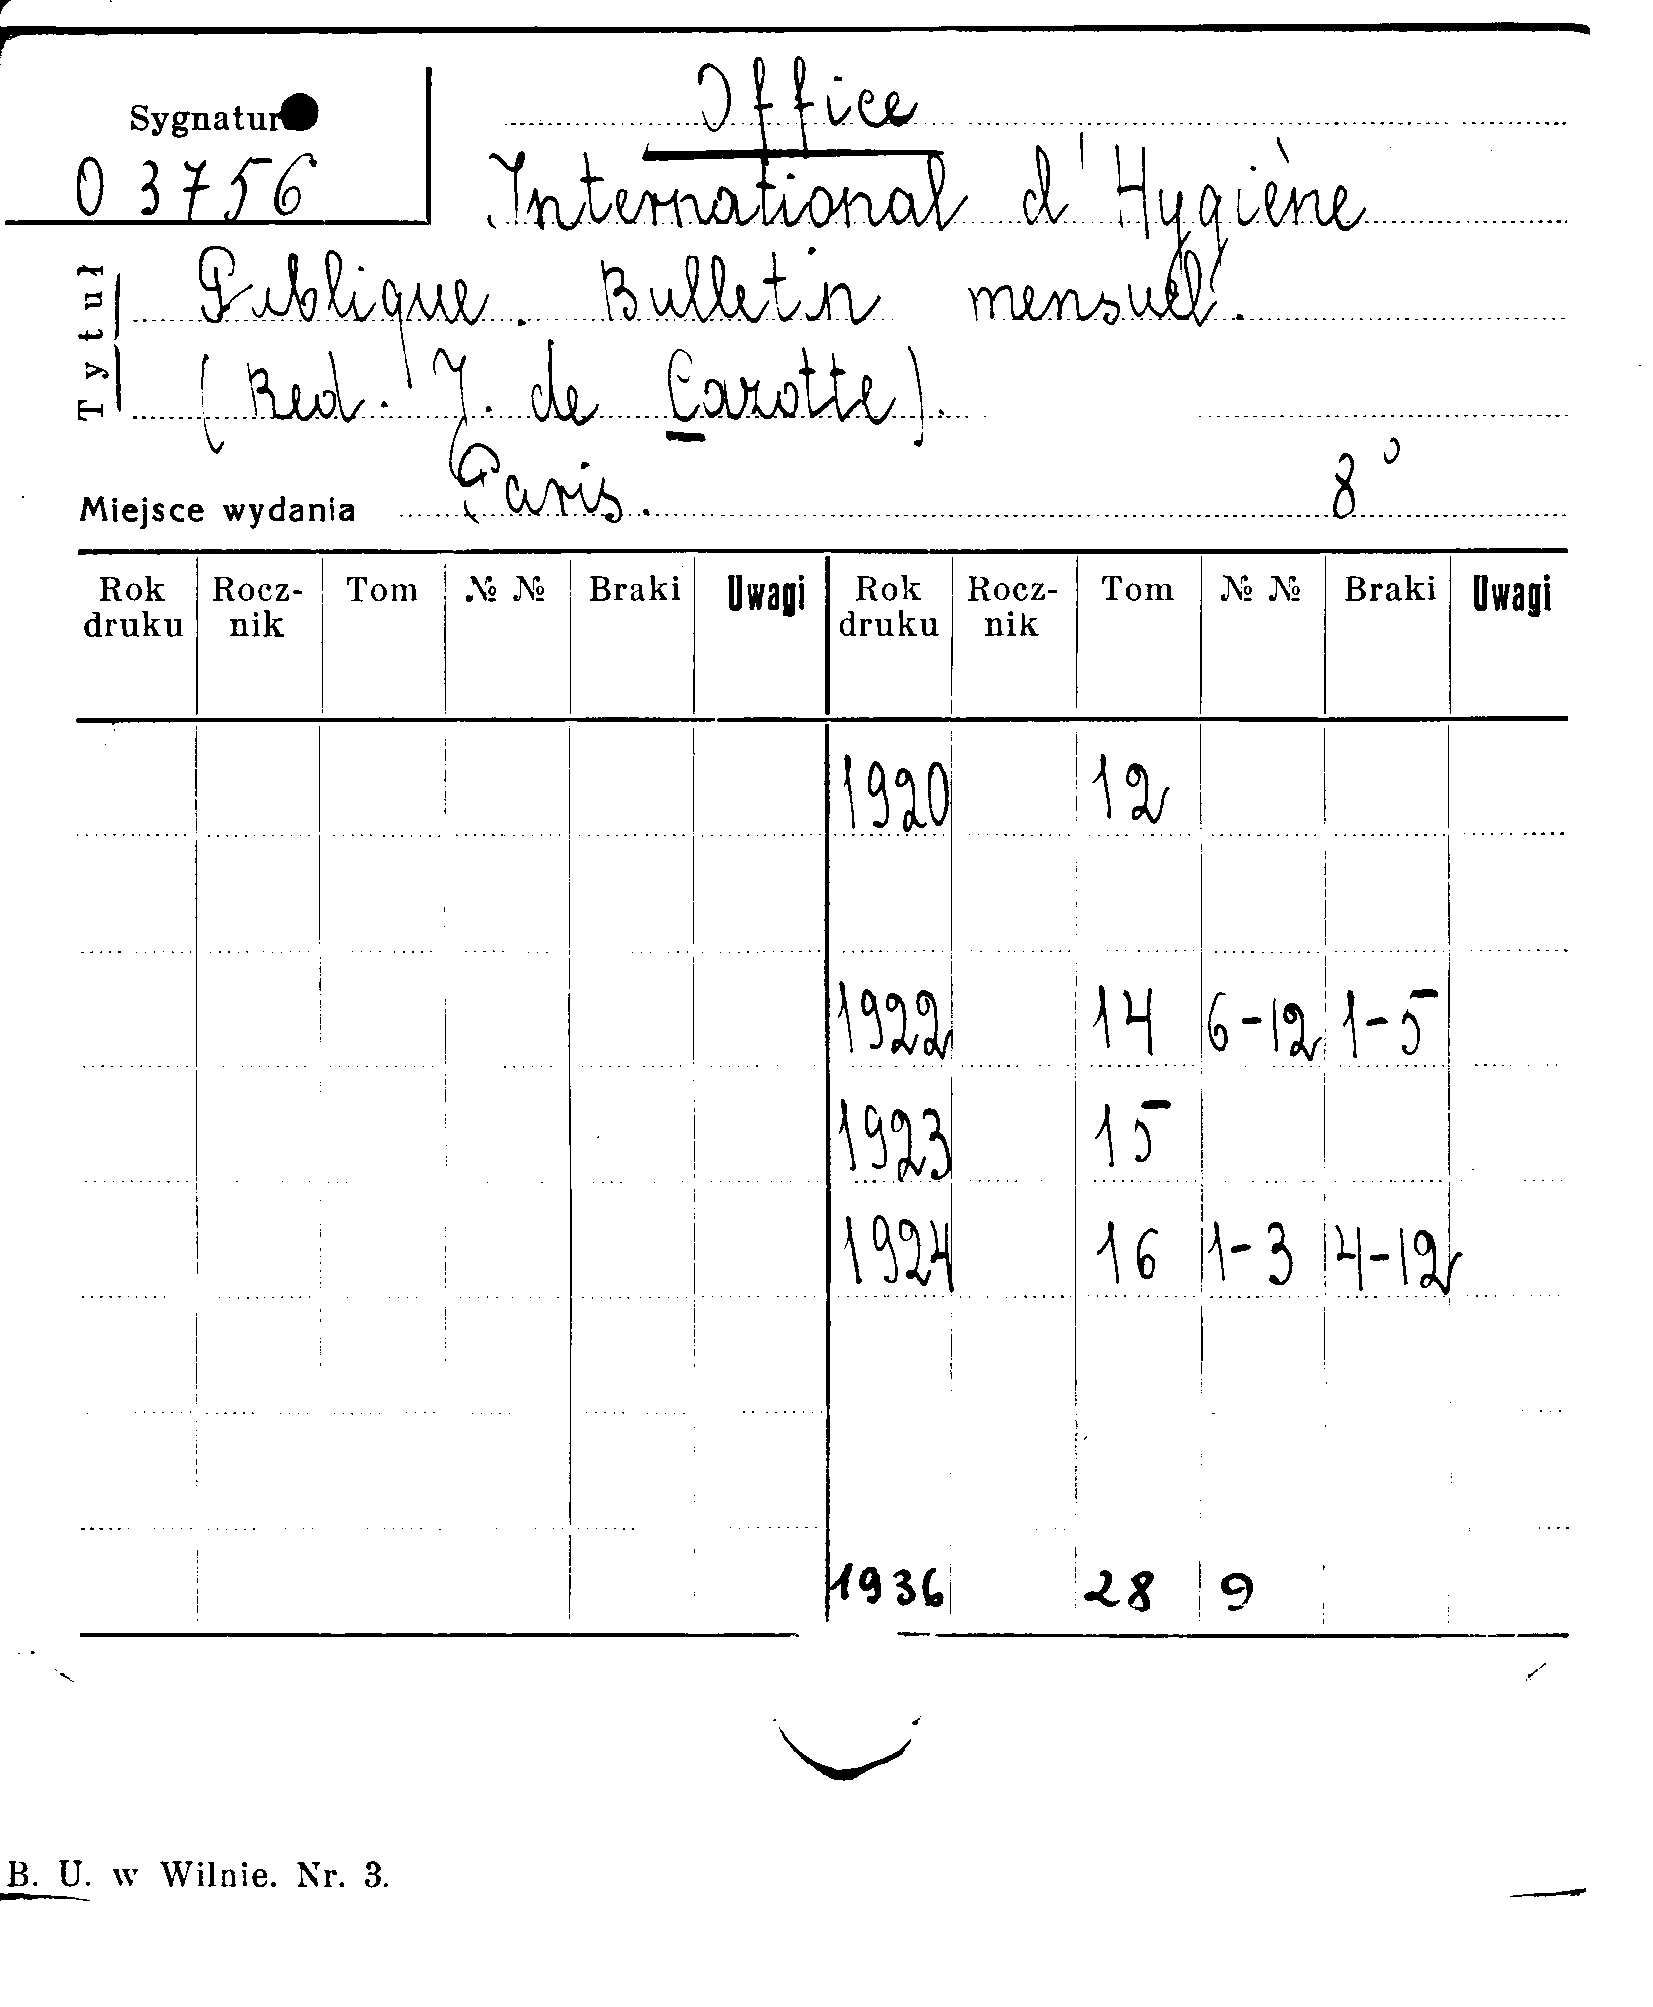 Sygnatura
Office
0 3756
International d'Hygiène
Tytuł
Publique. Bulletin mensuel.
(Red. J. de Cazotte).
Miejsce wydania Paris. 8°
Rok druku Rocz-nik Tom № № Braki Uwagi Rok druku Rocz-nik Tom № № Braki Uwagi
1920 12
1922 14 6-12 1-5
1923 15
1924 16 1-3 4-12
1936 28 9
B. U. w Wilnie. Nr. 3.